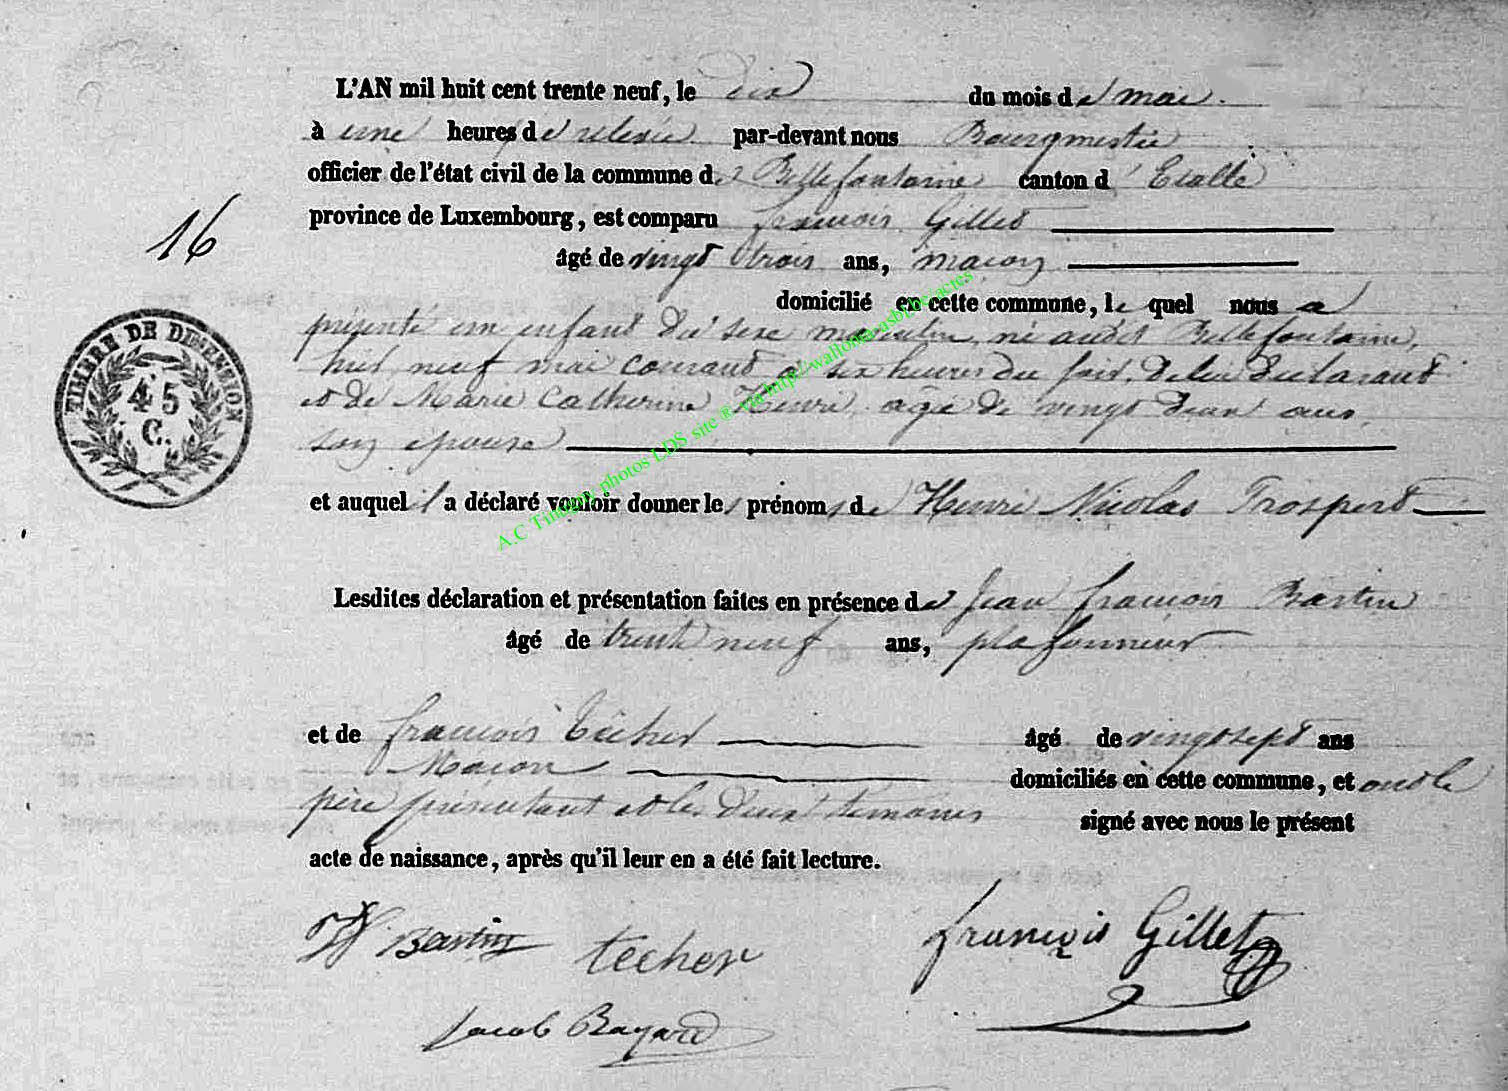 L'AN mil huit cent trente neuf, le dix du mois de mai
à une heures de relevée par-devant nous Bourgmestre
officier de l'état civil de la commune de Bellefontaine canton d'Etalle
province de Luxembourg, est comparu françois Gillet
16
âgé de vingt trois ans, maçon
domicilié en cette commune, le quel nous a
présenté un enfant du sexe masculin, né audit Bellefontaine,
hier neuf mai courant à six heures du soir, de lui déclarant
et de Marie Catherine Henri, agée de vingt deux ans,
son épouse
TIMBRE DE DIMENSION
45
C.
A.C Tintigny photos LDS site ® via http://wallonia-asbl.be/actes
et auquel il a déclaré vouloir donner les prénoms de Henri Nicolas Prospert
Lesdites déclaration et présentation faites en présence de Jean françois Bastin
âgé de trente neuf ans, plafonneur
et de françois Técher âgé de vingt sept ans
Macon domiciliés en cette commune, et ont le
père présentant et les deux témoins signé avec nous le présent
acte de naissance, après qu'il leur en a été fait lecture.
Bastin techer françois Gillet
Jacob Bayard